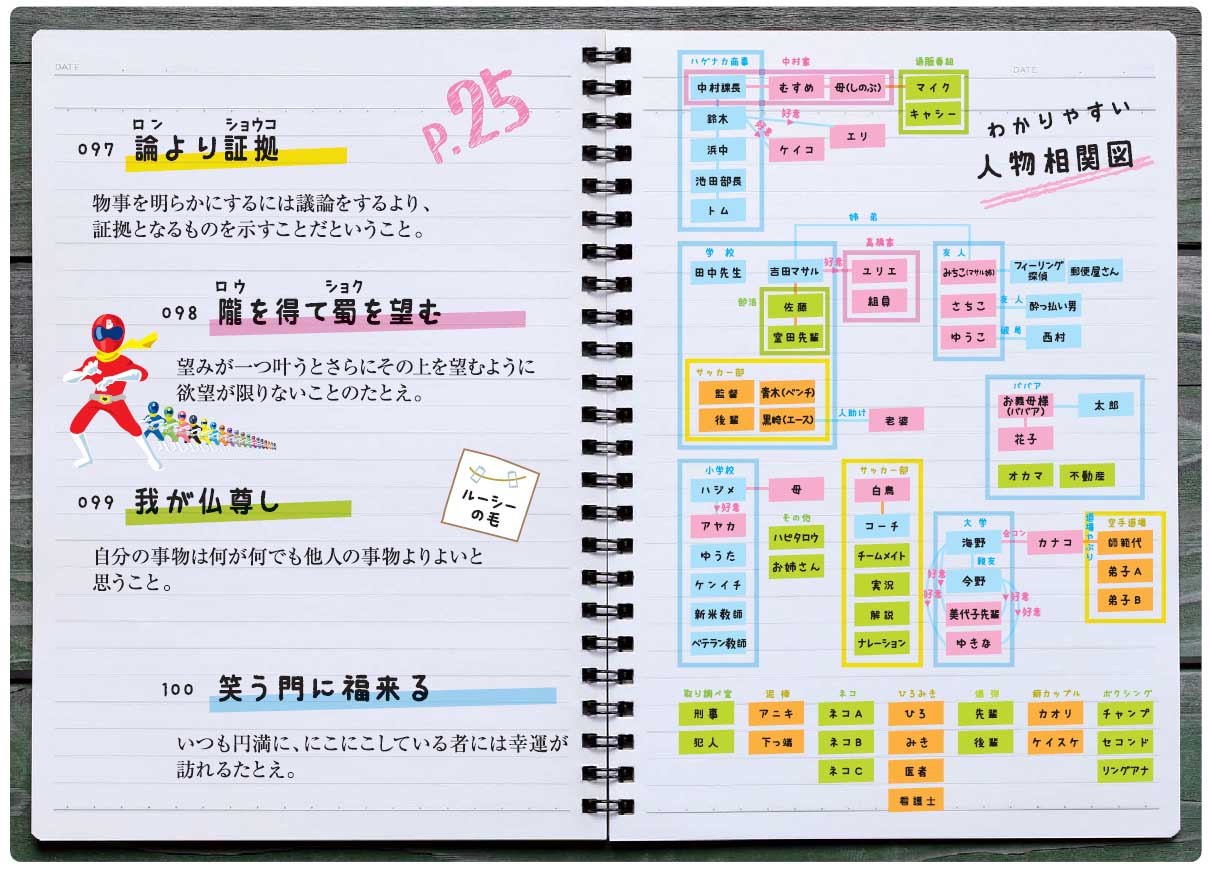 DATE
P.25
ロン ショウコ
097 論より証拠
物事を明らかにするには議論をするより、
証拠となるものを示すことだということ。
ロウ ショク
098 隴を得て蜀を望む
望みが一つ叶うとさらにその上を望むように
欲望が限りないことのたとえ。
B
099 我が仏尊し
自分の事物は何が何でも他人の事物よりよいと
思うこと。
ルーシー
の毛
100 笑う門に福来る
いつも円満に、にこにこしている者には幸運が
訪れるたとえ。
DATE
わかりやすい
人物相関図
ハゲナカ商事
中村課長
鈴木
浜中
池田部長
トム
中村家
むすめ
母(しのぶ)
好意
好意
ケイコ
エリ
通販番組
マイク
キャシー
姉弟
学校
田中先生
吉田マサル
好意
部活
佐藤
室田先輩
高橋家
ユリエ
組員
友人
みちこ(マサル姉)
さちこ
ゆうこ
フィーリング
探偵
郵便屋さん
友人
酔っ払い男
破局
西村
サッカー部
監督
青木(ベンチ)
後輩
黒崎(エース)
人助け
老婆
ババア
お義母様
(ババア)
太郎
花子
オカマ
不動産
小学校
ハジメ
母
好意
アヤカ
ゆうた
ケンイチ
新米教師
ベテラン教師
その他
ハピタロウ
お姉さん
サッカー部
白鳥
コーチ
チームメイト
実況
解説
ナレーション
大学
海野
合コン
カナコ
親友
今野
好意
好意
好意
好意
美代子先輩
ゆきな
道場やぶり
空手道場
師範代
弟子A
弟子B
取り調べ室
刑事
犯人
泥棒
アニキ
下っ端
ネコ
ネコA
ネコB
ネコC
ひろみき
ひろ
みき
医者
看護士
爆弾
先輩
後輩
癖カップル
カオリ
ケイスケ
ボクシング
チャンプ
セコンド
リングアナ